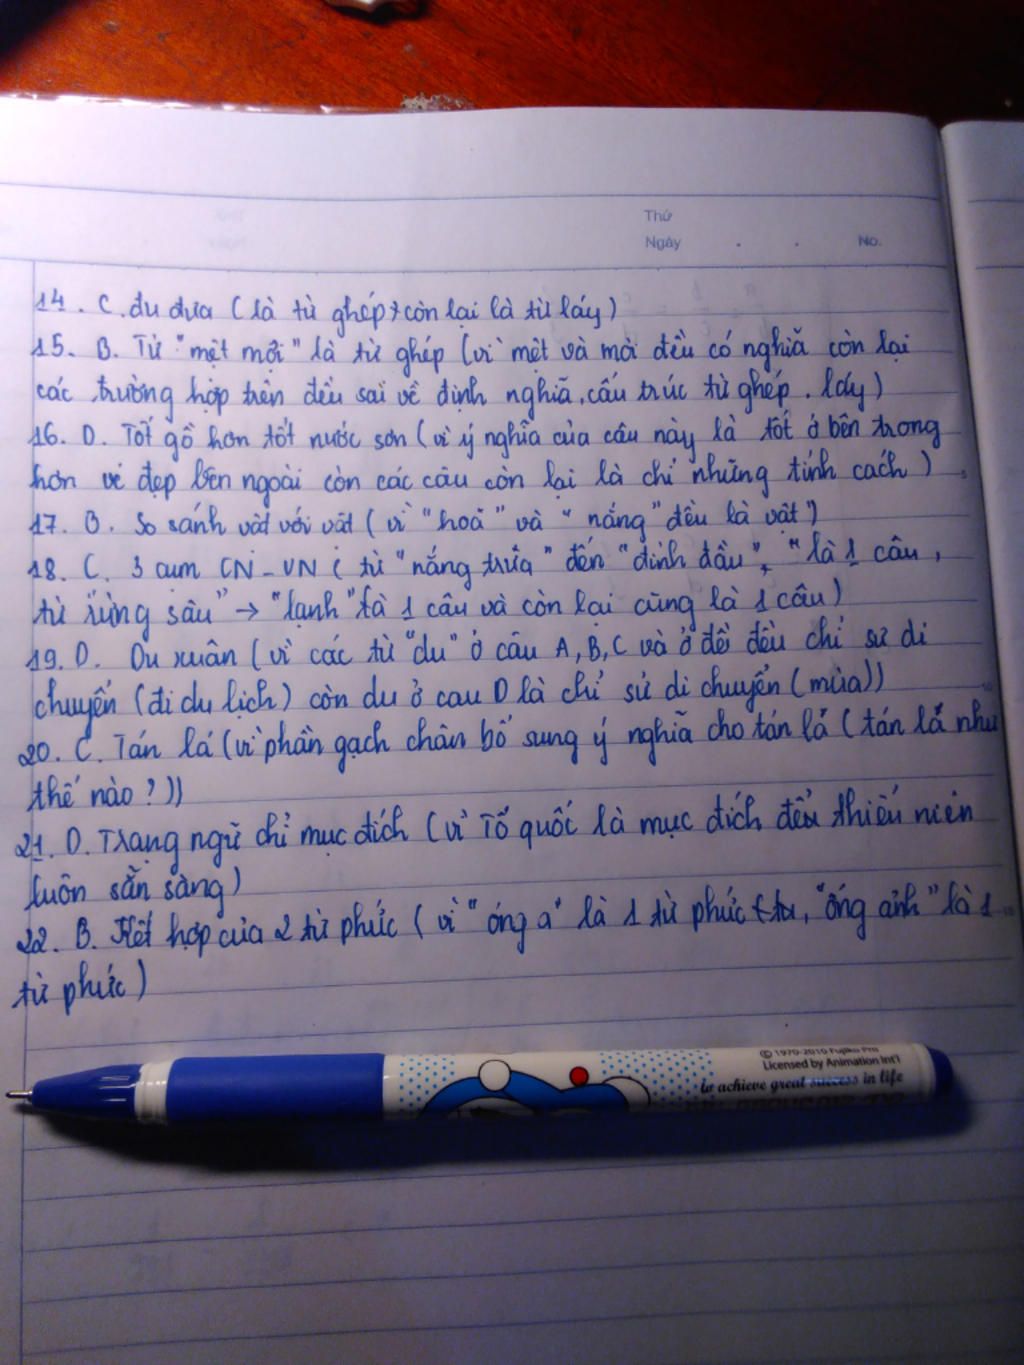 Thứ
Ngày . . No.
14. C. đu đưa (là từ ghép, còn lại là từ láy)
15. B. Từ "mệt mỏi" là từ ghép (vì mệt và mỏi đều có nghĩa còn lại
các trường hợp trên đều sai về định nghĩa, cấu trúc từ ghép. láy)
16. D. Tốt gỗ hơn tốt nước sơn (vì ý nghĩa của câu này là tốt ở bên trong
hơn vẻ đẹp bên ngoài còn các câu còn lại là chỉ những tính cách)
17. B. So sánh vật với vật (vì "hoa" và "nắng" đều là vật")
18. C. 3 cụm CN - VN (từ "nắng trưa" đến "đỉnh đầu", "là 1 câu,
từ rừng sâu" → "lạnh" là 1 câu và còn lại cũng là 1 câu)
19. D. Du xuân (vì các từ "du" ở câu A, B, C và ở đề đều chỉ sự di
chuyển (đi du lịch) còn du ở câu D là chỉ sự di chuyển (mùa))
20. C. Tán lá (vì phần gạch chân bổ sung ý nghĩa cho tán lá (tán lá như
thế nào?))
21. D. Trạng ngữ chỉ mục đích (vì Tổ quốc là mục đích để thiếu niên
luôn sẵn sàng)
22. B. Kết hợp của 2 từ phức (vì "óng ả" là 1 từ phức, "óng ánh" là 1
từ phức)
© 1970-2010 Fujiko Pro
Licensed by Animation Int'l
to achieve great success in life